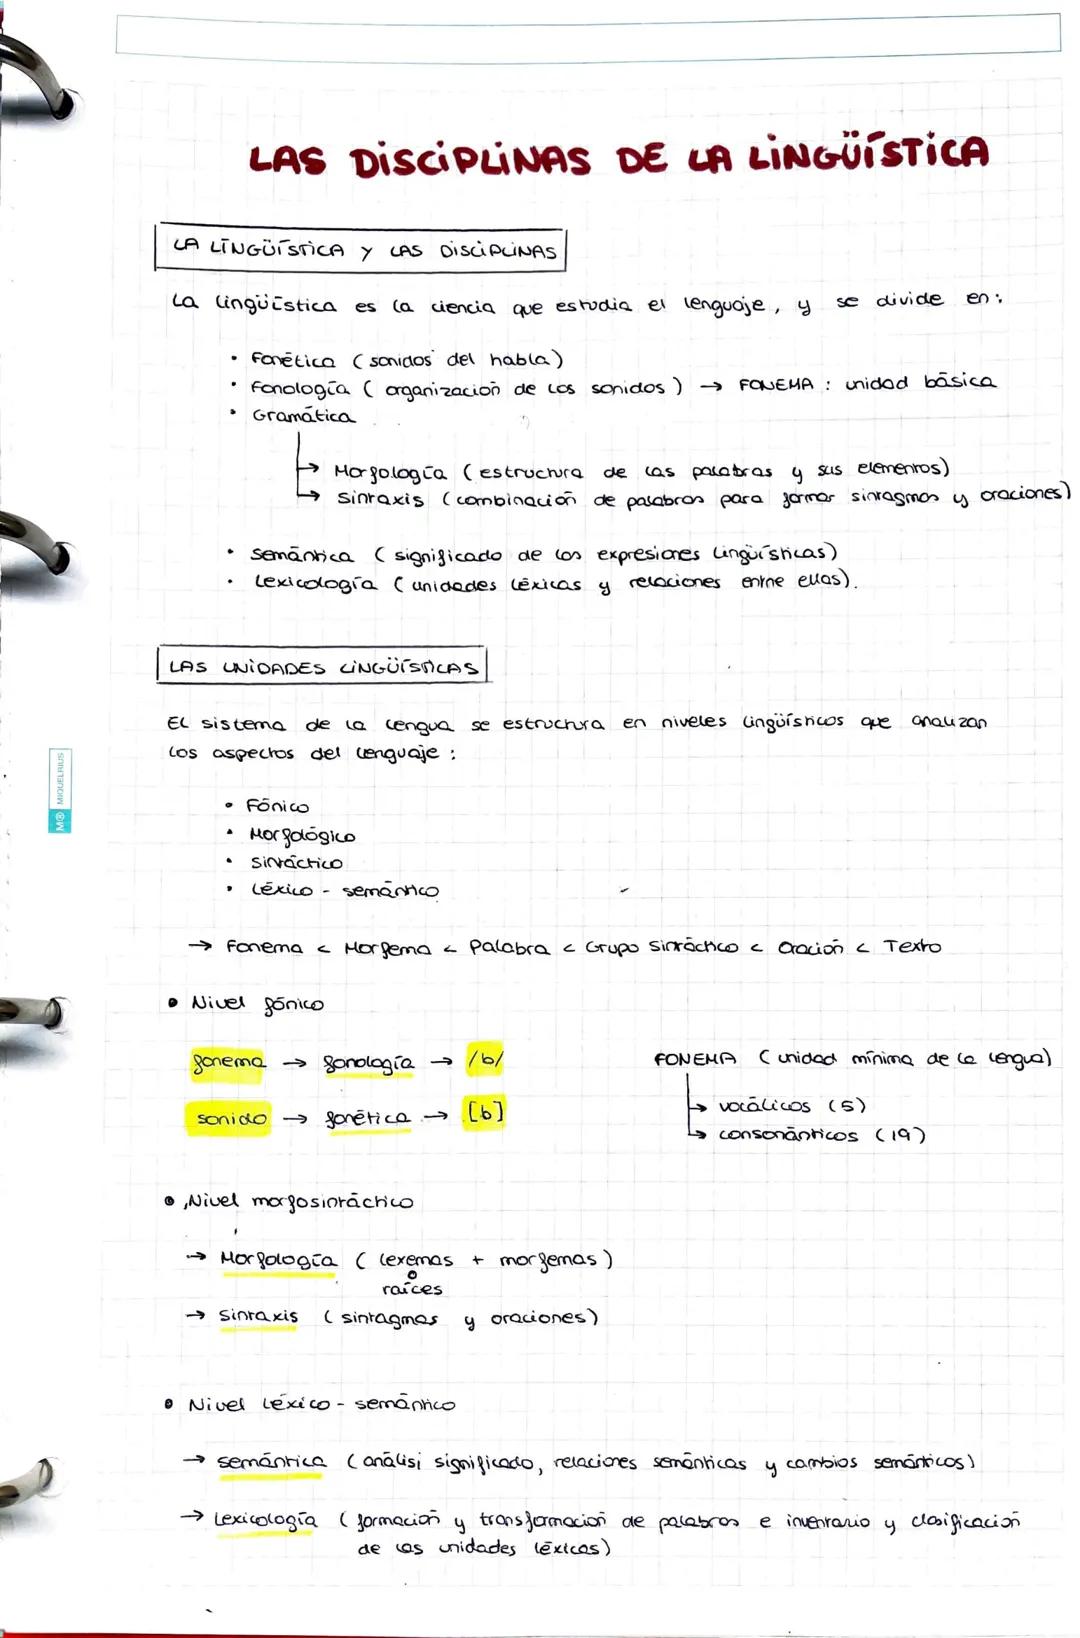 LAS DISCIPLINAS DE LA LINGÜÍSTICA
LA LINGÜÍSTICA Y LAS DISCIPLINAS
La lingüística es la ciencia que estudia el lenguaje, y se divide en:
• Fonética (sonidos del habla)
• Fonología (organización de los sonidos) → FONEMA: unidad básica
• Gramática
→ Morfología (estructura de las palabras y sus elementos)
→ Sintaxis (combinación de palabras para formar sintagmas y oraciones)
• Semántica (significado de las expresiones lingüísticas)
• Lexicología (unidades léxicas y relaciones entre ellas).
LAS UNIDADES LINGÜÍSTICAS
El sistema de la lengua se estructura en niveles lingüísticos que analizan
los aspectos del lenguaje:
• Fónico
• Morfológico
• Sintáctico
• Léxico - semántico
→ Fonema < Morfema < Palabra < Grupo Sintáctico < Oración < Texto
• Nivel fónico
fonema → fonología → /b/
sonido → fonética → [b]
FONEMA (unidad mínima de la lengua)
→ vocálicos (5)
→ consonánticos (19)
• Nivel morfosintáctico
→ Morfología (lexemas + morfemas)
o
raíces
→ Sintaxis (sintagmas y oraciones)
• Nivel léxico - semántico
→ Semántica (análisi significado, relaciones semánticas y cambios semánticos)
→ Lexicología (formación y transformación de palabras e inventario y clasificación
de las unidades léxicas)
M® MIQUELRIUS